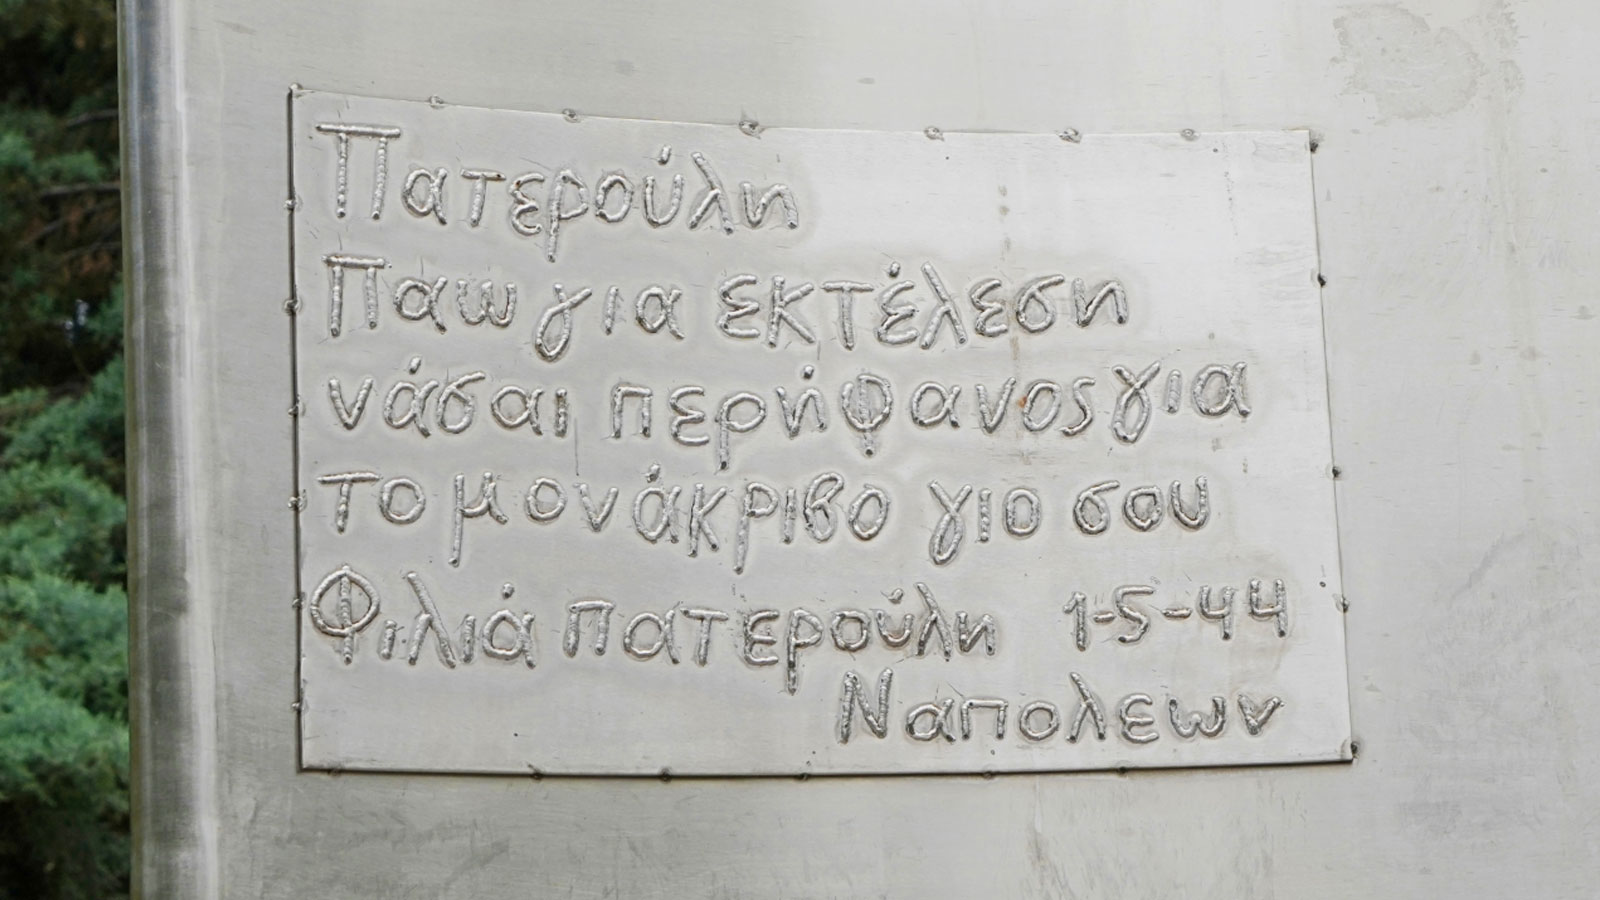 Πατερούλη
Παω για εκτέλεση
νάσαι περήφανος για
το μονάκριβο γιο σου
Φιλιά πατερούλη 1-5-44
Ναπολεων